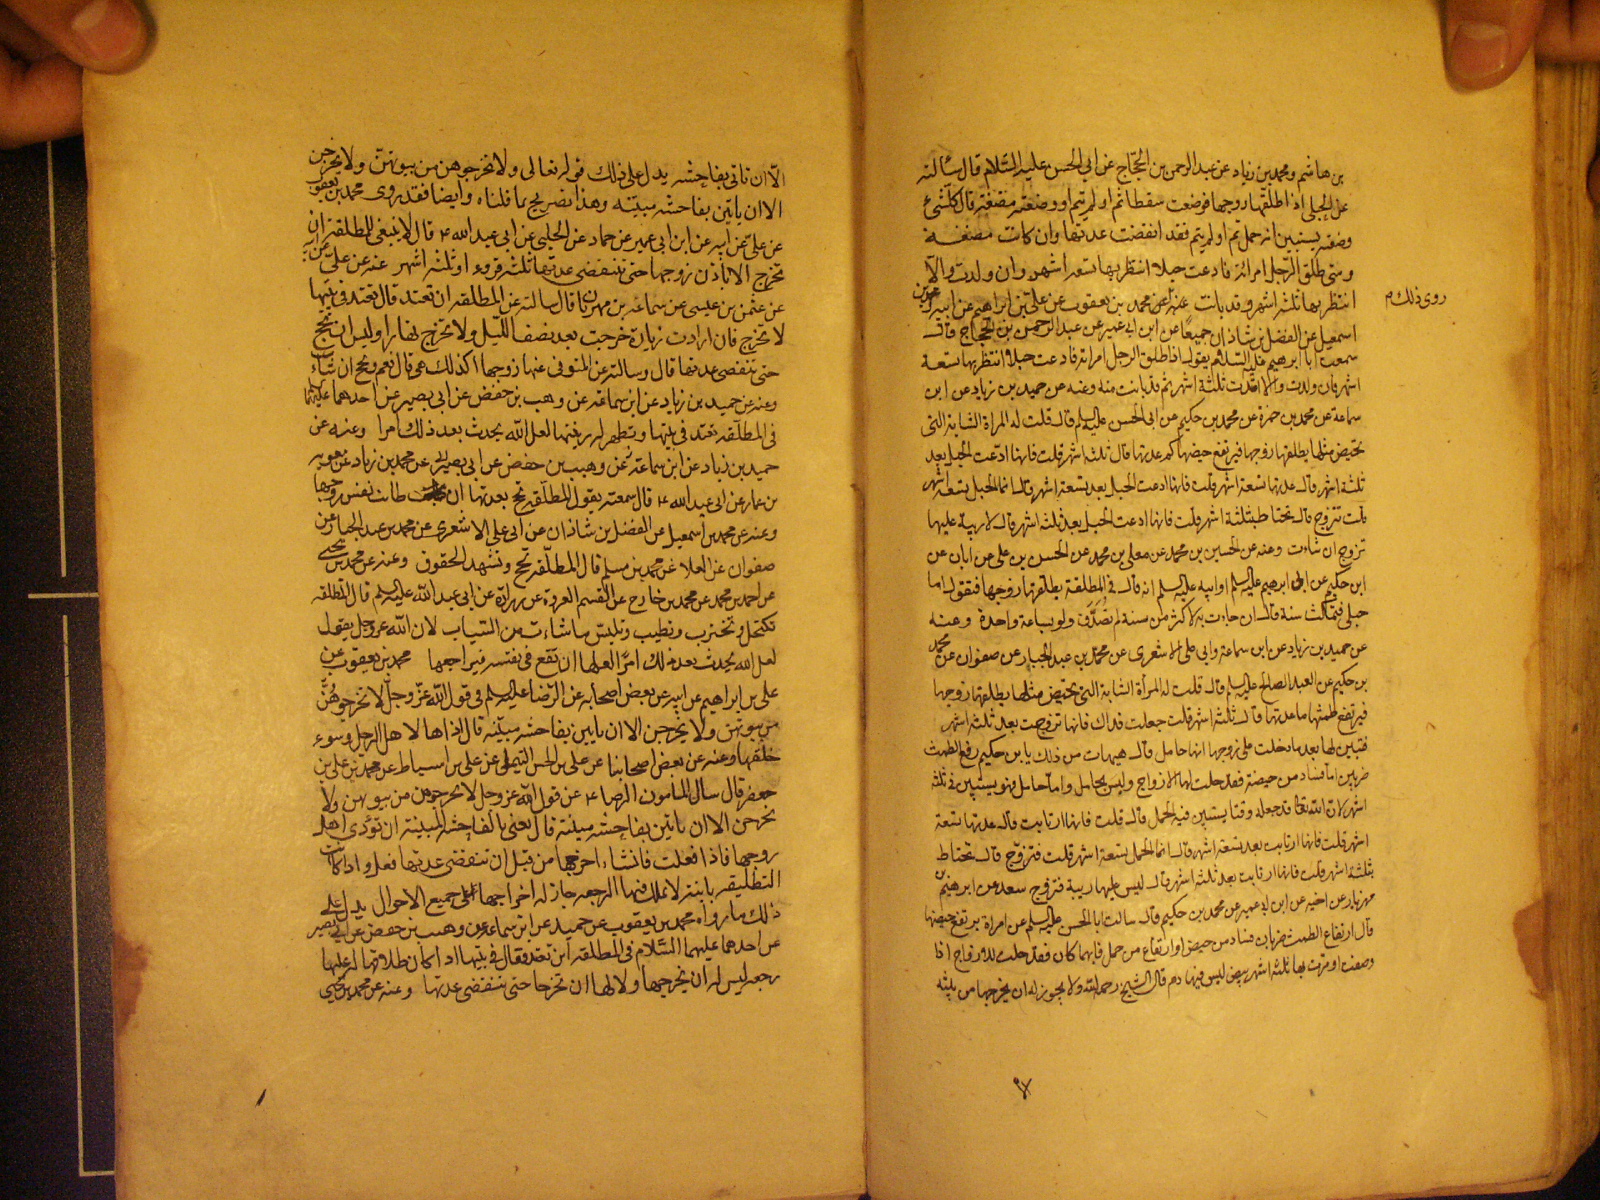 بن هاشم ومحمد بن زياد عن عبد الرحمن بن الحجاج عن ابي الحسن عليه السلام قال سألته
عن الحبلى اذا طلقها زوجها فوضعت سقطا تم او لم يتم او وضعته مضغة قال كل شيء
وضعته يستبين انه حمل تم او لم يتم فقد انقضت عدتها وان كانت مضغة
ومتى طلق الرجل امرأته فادعت حبلا انتظر بها تسعة اشهر وان ولدت والا
انتظر بها ثلثة اشهر وقد بانت عنه محمد بن يعقوب عن علي بن ابراهيم عن ابيه
روى ذلك م
اسمعيل عن الفضل بن شاذان جميعا عن ابن ابي عمير عن عبد الرحمن بن الحجاج قال
سمعت ابا ابراهيم عليه السلام يقول اذا طلق الرجل امرأته فادعت حبلا انتظر بها تسعة
اشهر فان ولدت والا اعتدت ثلثة اشهر ثم قد بانت منه وعنه عن حميد بن زياد عن ابن
سماعة عن محمد بن حمزة عن محمد بن حكيم عن ابي الحسن عليه السلم قال قلت له المراة الشابة التى
تحيض مثلها يطلقها زوجها فيرتفع حيضها كم عدتها قال ثلثة اشهر قلت فانها ادعت الحبل بعد
ثلثة اشهر قال عدتها تسعة اشهر قلت فانها ادعت الحبل بعد تسعة اشهر قال انما الحبل تسعة اشهر
قلت تتزوج قال تحتاط بثلثة اشهر قلت فانها ادعت الحبل بعد ثلثة اشهر قال لا ريبة عليها
تزوج ان شاءت وعنه عن الحسين بن محمد عن معلى بن محمد عن الحسن بن علي عن ابان عن
ابن حكيم عن ابي ابراهيم عليه السلم او ابيه عليه السلم انه قال في المطلقة يطلقها زوجها فتقول انا
حبلى فتمكث سنة قال ان جاءت به لاكثر من سنة لم تصدق ولو بساعة واحدة وعنه
عن حميد بن زياد عن ابن سماعة وابي علي الاشعرى عن محمد بن عبد الجبار عن صفوان عن محمد
بن حكيم عن العبد الصالح عليه السلم قال قلت له المرأة الشابة التى تحيض مثلها يطلقها زوجها
فيرتفع طمثها ما عدتها قال ثلثة اشهر قلت جعلت فداك فانها تزوجت بعد ثلثة اشهر
فتبين لها بعد ما دخلت على زوجها انها حامل قال هيهات من ذلك يا بن حكيم رفع الطمث
ضربان اما فساد من حيضة فقد حلت لها الازواج وليس بحامل واما حامل فهو يستبين في ثلثة
اشهر لان الله تعالى قد جعله وقتا يستبين فيه الحمل قال قلت فانها ارتابت قال عدتها تسعة
اشهر قلت فانها ارتابت بعد تسعة اشهر قال انما الحمل تسعة اشهر قلت فتزوج قال تحتاط
بثلثة اشهر قلت فانها ارتابت بعد ثلثة اشهر قال ليس عليها ريبة فتزوج سعد عن ابراهيم بن
مهزيار عن اخيه عن ابن ابي عمير عن محمد بن حكيم قال سالت ابا الحسن عليه السلم عن امراة يرتفع حيضها
قال ارتفاع الطمث ضربان فساد من حيض او ارتفاع من حمل فايهما كان فقد حلت للازواج اذا
وضعت او مرت بها ثلثة اشهر بيض ليس فيها دم قال الشيخ رحمه الله ولا يجوز له ان يخرجها من بيته
الا ان تاتى بفاحشه يدل على ذلك قوله تعالى ولا تخرجوهن من بيوتهن ولا يخرجن
الا ان ياتين بفاحشه مبينه وهذا تصريح بما قلناه وايضا فقد روى محمد بن يعقوب
عن علي عن ابيه عن ابن ابي عمير عن حماد عن الحلبي عن ابي عبد الله ع قال لا ينبغى للمطلقة ان
تخرج الا باذن زوجها حتى تنقضى عدتها ثلثة قروء او ثلثه اشهر عنه عن علي
عن عثمن بن عيسى عن سماعة بن مهران قال سالته عن المطلقه اين تعتد قال تعتد في بيتها
لا تخرج فان ارادت زيارة خرجت بعد نصف الليل ولا تخرج نهارا وليس ان تحج
حتى تنقضى عدتها قال وسالته عن المتوفى عنها زوجها اكذلك هى قال نعم وتحج ان شاءت
وعنه عن حميد بن زياد عن ابن سماعة عن وهب بن حفص عن ابي بصير عن احدهما عليهما
فى المطلقة تعتد في بيتها وتظهر له زينتها لعل الله يحدث بعد ذلك امرا وعنه عن
حميد بن زياد عن ابن سماعة عن وهيب بن حفص عن ابي بصير عن محمد بن زياد عن معويه
بن عمار عن ابي عبد الله ع قال سمعته يقول المطلقه تحج بعدتها ان طابت نفس زوجها
وعنه عن محمد بن اسمعيل عن الفضل بن شاذان عن ابي على الاشعرى عن محمد بن عبد الجبار عن
صفوان عن العلا عن محمد بن مسلم قال المطلقه تحج وتشهد الحقوق وعنه عن محمد بن يحيى
عن احمد بن محمد عن محمد بن خالد عن القسم بن عروة عن زرارة عن ابي عبد الله عليه السلم قال المطلقه
تكتحل وتختضب وتطيب وتلبس ما شاءت من الثياب لان الله عز وجل يقول
لعل الله يحدث بعد ذلك امرا لعلها ان تقع في نفسه فيراجعها محمد بن يعقوب عن
على بن ابراهيم عن ابيه عن بعض اصحابه عن الرضا عليه السلم فى قول الله عز وجل لا تخرجوهن
من بيوتهن ولا يخرجن الا ان ياتين بفاحشه مبينه قال اذاها لاهل الرجل وسوء
خلقها وعنه عن بعض اصحابنا عن علي بن الحسن التيملى عن علي بن اسباط عن محمد بن علي بن
جعفر قال سال المامون الرضا ع عن قول الله عز وجل لا تخرجوهن من بيوتهن ولا
يخرجن الا ان ياتين بفاحشه مبينه قال يعنى بالفاحشه المبينه ان تؤدى اهل
زوجها فاذا فعلت فان شاء اخرجها من قبل ان تنقضى عدتها فعل واذا كانت
التطليقه باينة لا يملك فيها الرجعه جاز له اخراجها على جميع الاحوال يدل على
ذلك ما رواه محمد بن يعقوب عن حميد عن ابن سماعة عن وهيب بن حفص عن ابي بصير
عن احدهما عليهما السلام فى المطلقه اين تعتد فقال في بيتها اذا كان طلاقا له عليها
رجعه ليس له ان يخرجها ولا لها ان تخرج حتى تنقضى عدتها وعنه عن محمد بن يحيى